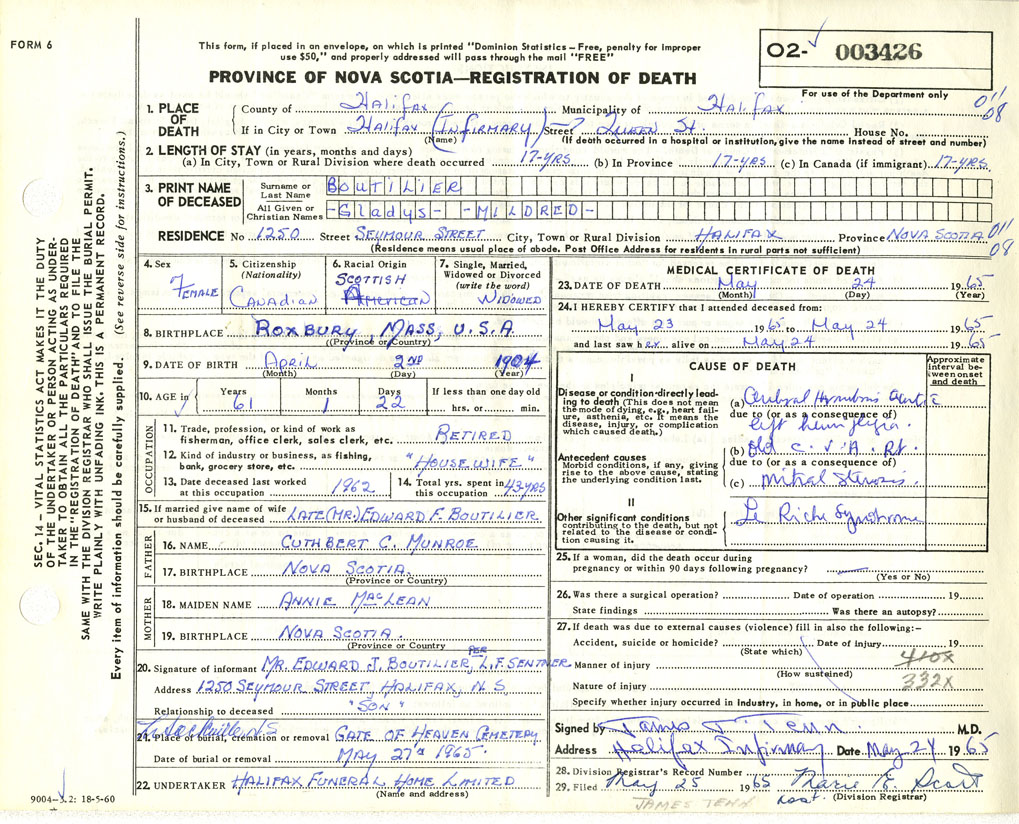 FORM 6
This form, if placed in an envelope, on which is printed "Dominion Statistics – Free, penalty for improper
use $50," and properly addressed will pass through the mail "FREE"
O2-✓ 003426
PROVINCE OF NOVA SCOTIA—REGISTRATION OF DEATH
For use of the Department only
011
08
1. PLACE OF DEATH
County of Halifax Municipality of Halifax
If in City or Town Halifax (Infirmary) Street Queen St. House No.
(Name) (If death occurred in a hospital or institution, give the name instead of street and number)
2. LENGTH OF STAY (in years, months and days)
(a) In City, Town or Rural Division where death occurred 17-YRS (b) In Province 17-YRS (c) In Canada (if immigrant) 17-YRS
3. PRINT NAME OF DECEASED
Surname or Last Name BOUTILIER
All Given or Christian Names -Gladys- -MILDRED-
RESIDENCE No 1250 Street SEYMOUR STREET City, Town or Rural Division HALIFAX Province NOVA SCOTIA 011
(Residence means usual place of abode. Post Office Address for residents in rural parts not sufficient) 08
4. Sex FEMALE
5. Citizenship (Nationality) CANADIAN
6. Racial Origin SCOTTISH American
7. Single, Married, Widowed or Divorced (write the word) WIDOWED
8. BIRTHPLACE ROXBURY, MASS, U.S.A.
(Province or Country)
9. DATE OF BIRTH April 2ND 1904
(Month) (Day) (Year)
10. AGE in Years 61 Months 1 Days 22 If less than one day old hrs. or min.
OCCUPATION
11. Trade, profession, or kind of work as fisherman, office clerk, sales clerk, etc. RETIRED
12. Kind of industry or business, as fishing, bank, grocery store, etc. "HOUSEWIFE"
13. Date deceased last worked at this occupation 1962
14. Total yrs. spent in this occupation 43-YRS
15. If married give name of wife or husband of deceased LATE (MR.) EDWARD F. BOUTILIER
FATHER
16. NAME CUTHBERT C. MUNROE
17. BIRTHPLACE NOVA SCOTIA
(Province or Country)
MOTHER
18. MAIDEN NAME ANNIE MACLEAN
19. BIRTHPLACE NOVA SCOTIA.
(Province or Country
20. Signature of informant MR. EDWARD J. BOUTILIER, PER L.F. SENTNER
Address 1250 SEYMOUR STREET, HALIFAX, N.S.
Relationship to deceased "SON"
L. Sackville N.S.
21. Place of burial, cremation or removal GATE OF HEAVEN CEMETERY
Date of burial or removal MAY 27th 1965.
22. UNDERTAKER HALIFAX FUNERAL HOME LIMITED
(Name and address)
9004-3.2: 18-5-60
MEDICAL CERTIFICATE OF DEATH
23. DATE OF DEATH May 24 1965
(Month) (Day) (Year)
24. I HEREBY CERTIFY that I attended deceased from:
May 23 1965 to May 24 1965
and last saw her alive on May 24 1965
CAUSE OF DEATH
Approximate interval between onset and death
I
Disease or condition directly leading to death (This does not mean the mode of dying, e.g., heart failure, asthenia, etc. It means the disease, injury, or complication which caused death.)
(a) Cerebral Thrombosis acute
due to (or as a consequence of)
left hemiplegia.
Antecedent causes
Morbid conditions, if any, giving rise to the above cause, stating the underlying condition last.
(b) Old C.V.A. Rt.
due to (or as a consequence of)
(c) mitral stenosis.
II
Other significant conditions contributing to the death, but not related to the disease or condition causing it.
Le Riche Syndrome
25. If a woman, did the death occur during pregnancy or within 90 days following pregnancy?
(Yes or No)
26. Was there a surgical operation? Date of operation 19
State findings Was there an autopsy?
27. If death was due to external causes (violence) fill in also the following:-
Accident, suicide or homicide? Date of injury 19
(State which)
410X
Manner of injury
(How sustained)
332X
Nature of injury
Specify whether injury occurred in industry, in home, or in public place
Signed by James J. Tenn M.D.
Address Halifax Infirmary Date May 24 1965
28. Division Registrar's Record Number
29. Filed May 25 1965 Marie E. Scott
JAMES TENN Asst. (Division Registrar)
SEC. 14 – VITAL STATISTICS ACT MAKES IT THE DUTY
OF THE UNDERTAKER OR PERSON ACTING AS UNDER-
TAKER TO OBTAIN ALL THE PARTICULARS REQUIRED
IN THE "REGISTRATION OF DEATH" AND TO FILE THE
SAME WITH THE DIVISION REGISTRAR WHO SHALL ISSUE THE BURIAL PERMIT.
WRITE PLAINLY WITH UNFADING INK. THIS IS A PERMANENT RECORD.
Every item of information should be carefully supplied. (See reverse side for instructions.)